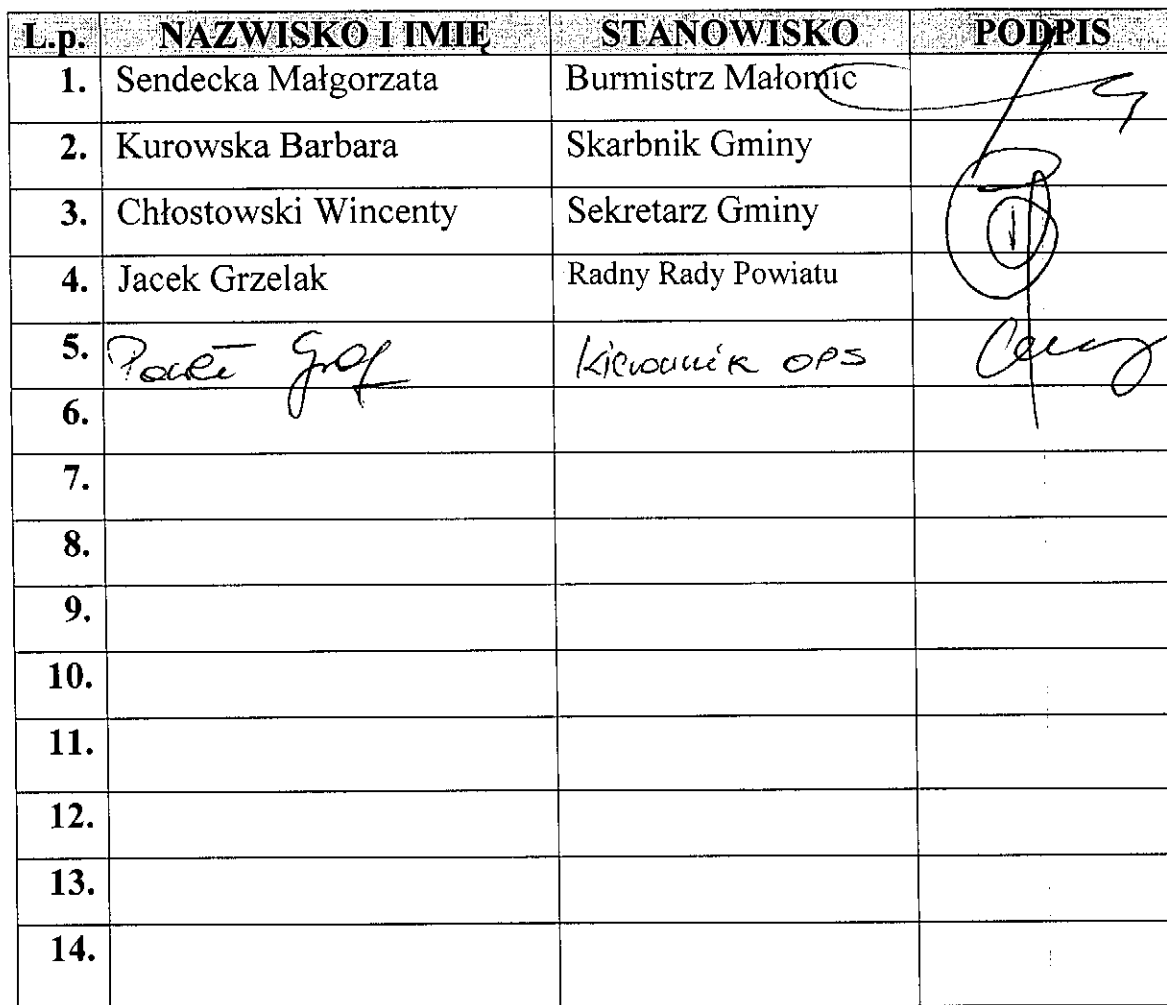 L.p. NAZWISKO I IMIĘ STANOWISKO PODPIS
1. Sendecka Małgorzata Burmistrz Małomic
2. Kurowska Barbara Skarbnik Gminy
3. Chłostowski Wincenty Sekretarz Gminy
4. Jacek Grzelak Radny Rady Powiatu
5. Kierownik OPS
6.
7.
8.
9.
10.
11.
12.
13.
14.